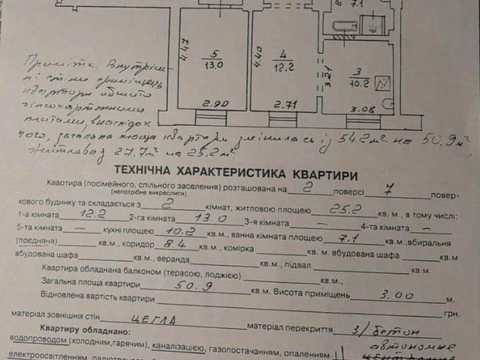 7.1
5
13.0
4.47
2.90
4
12.2
4.40
2.71
3
10.2
3.21
3.08
Примітка. Внутріш-
ні стіни приміщень
квартири обшито
гіпсокартонними
плитами, внаслідок
чого, загальна площа квартири змінилась із 54.2м² на 50.9м²
житлова з 27.7м² на 25.2м².
ТЕХНІЧНА ХАРАКТЕРИСТИКА КВАРТИРИ
Квартира (посімейного, спільного заселення) розташована на 2 поверсі 7 повер-
(непотрібне викреслити)
хового будинку та складається з 2 кімнат, житловою площею 25.2 кв. м., в тому числі:
1-а кімната 12.2 кв. м., 2-га кімната 13.0 кв. м., 3-я кімната — кв. м., 4-та кімната —
5-та кімната — кв. м., кухні площею 10.2 кв. м., ванна кімната площею 7.1 кв. м., вбиральня
(поєднана) кв. м., коридор 8.4 кв. м., комірка кв. м., вбудована шафа
вбудована шафа кв. м., веранда кв. м., підвал кв. м.
Квартира обладнана балконом (терасою, лоджією) кв. м.
Загальна площа квартири 50.9 кв. м. Висота приміщень 3.00 м.
Відновлена вартість квартири грн.
матеріал зовнішніх стін ЦЕГЛА матеріал перекриття З/бетон
Квартиру обладнано: автономне
водопроводом (холодним, гарячим), каналізацією, газопостачанням, опаленням
електроосвітленням, радіо